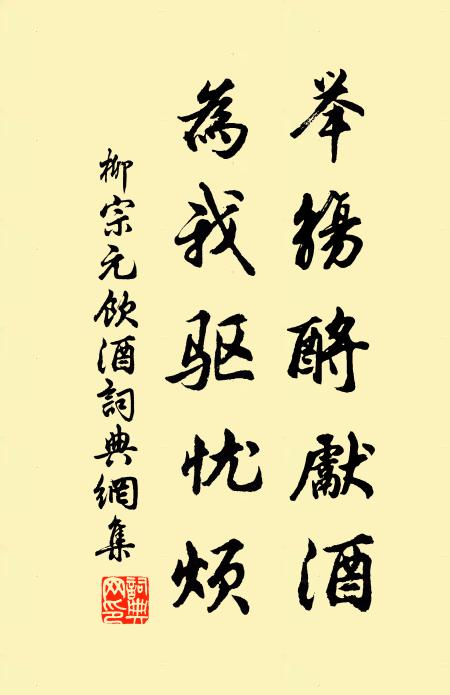 举觞酹献酒
为我驱忧烦
柳宗元饮酒词典網集
词典网印